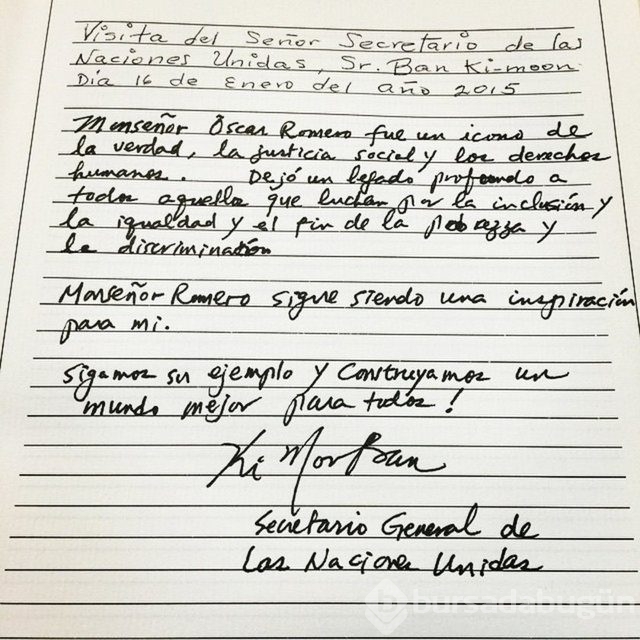 Visita del Señor Secretario de las
Naciones Unidas, Sr. Ban Ki-moon
Día 16 de Enero del año 2015
Monseñor Óscar Romero fue un icono de
la verdad, la justicia social y los derechos
humanos. Dejó un legado profundo a
todos aquellos que luchan por la inclusión y
la igualdad y el fin de la pobrezza y
la discriminación
Monseñor Romero sigue siendo una inspiración
para mi.
Sigamos su ejemplo y construyamos un
mundo mejor para todos!
Ki Moon Ban
Secretario General de
Las Naciones Unidas
b bursadabugün